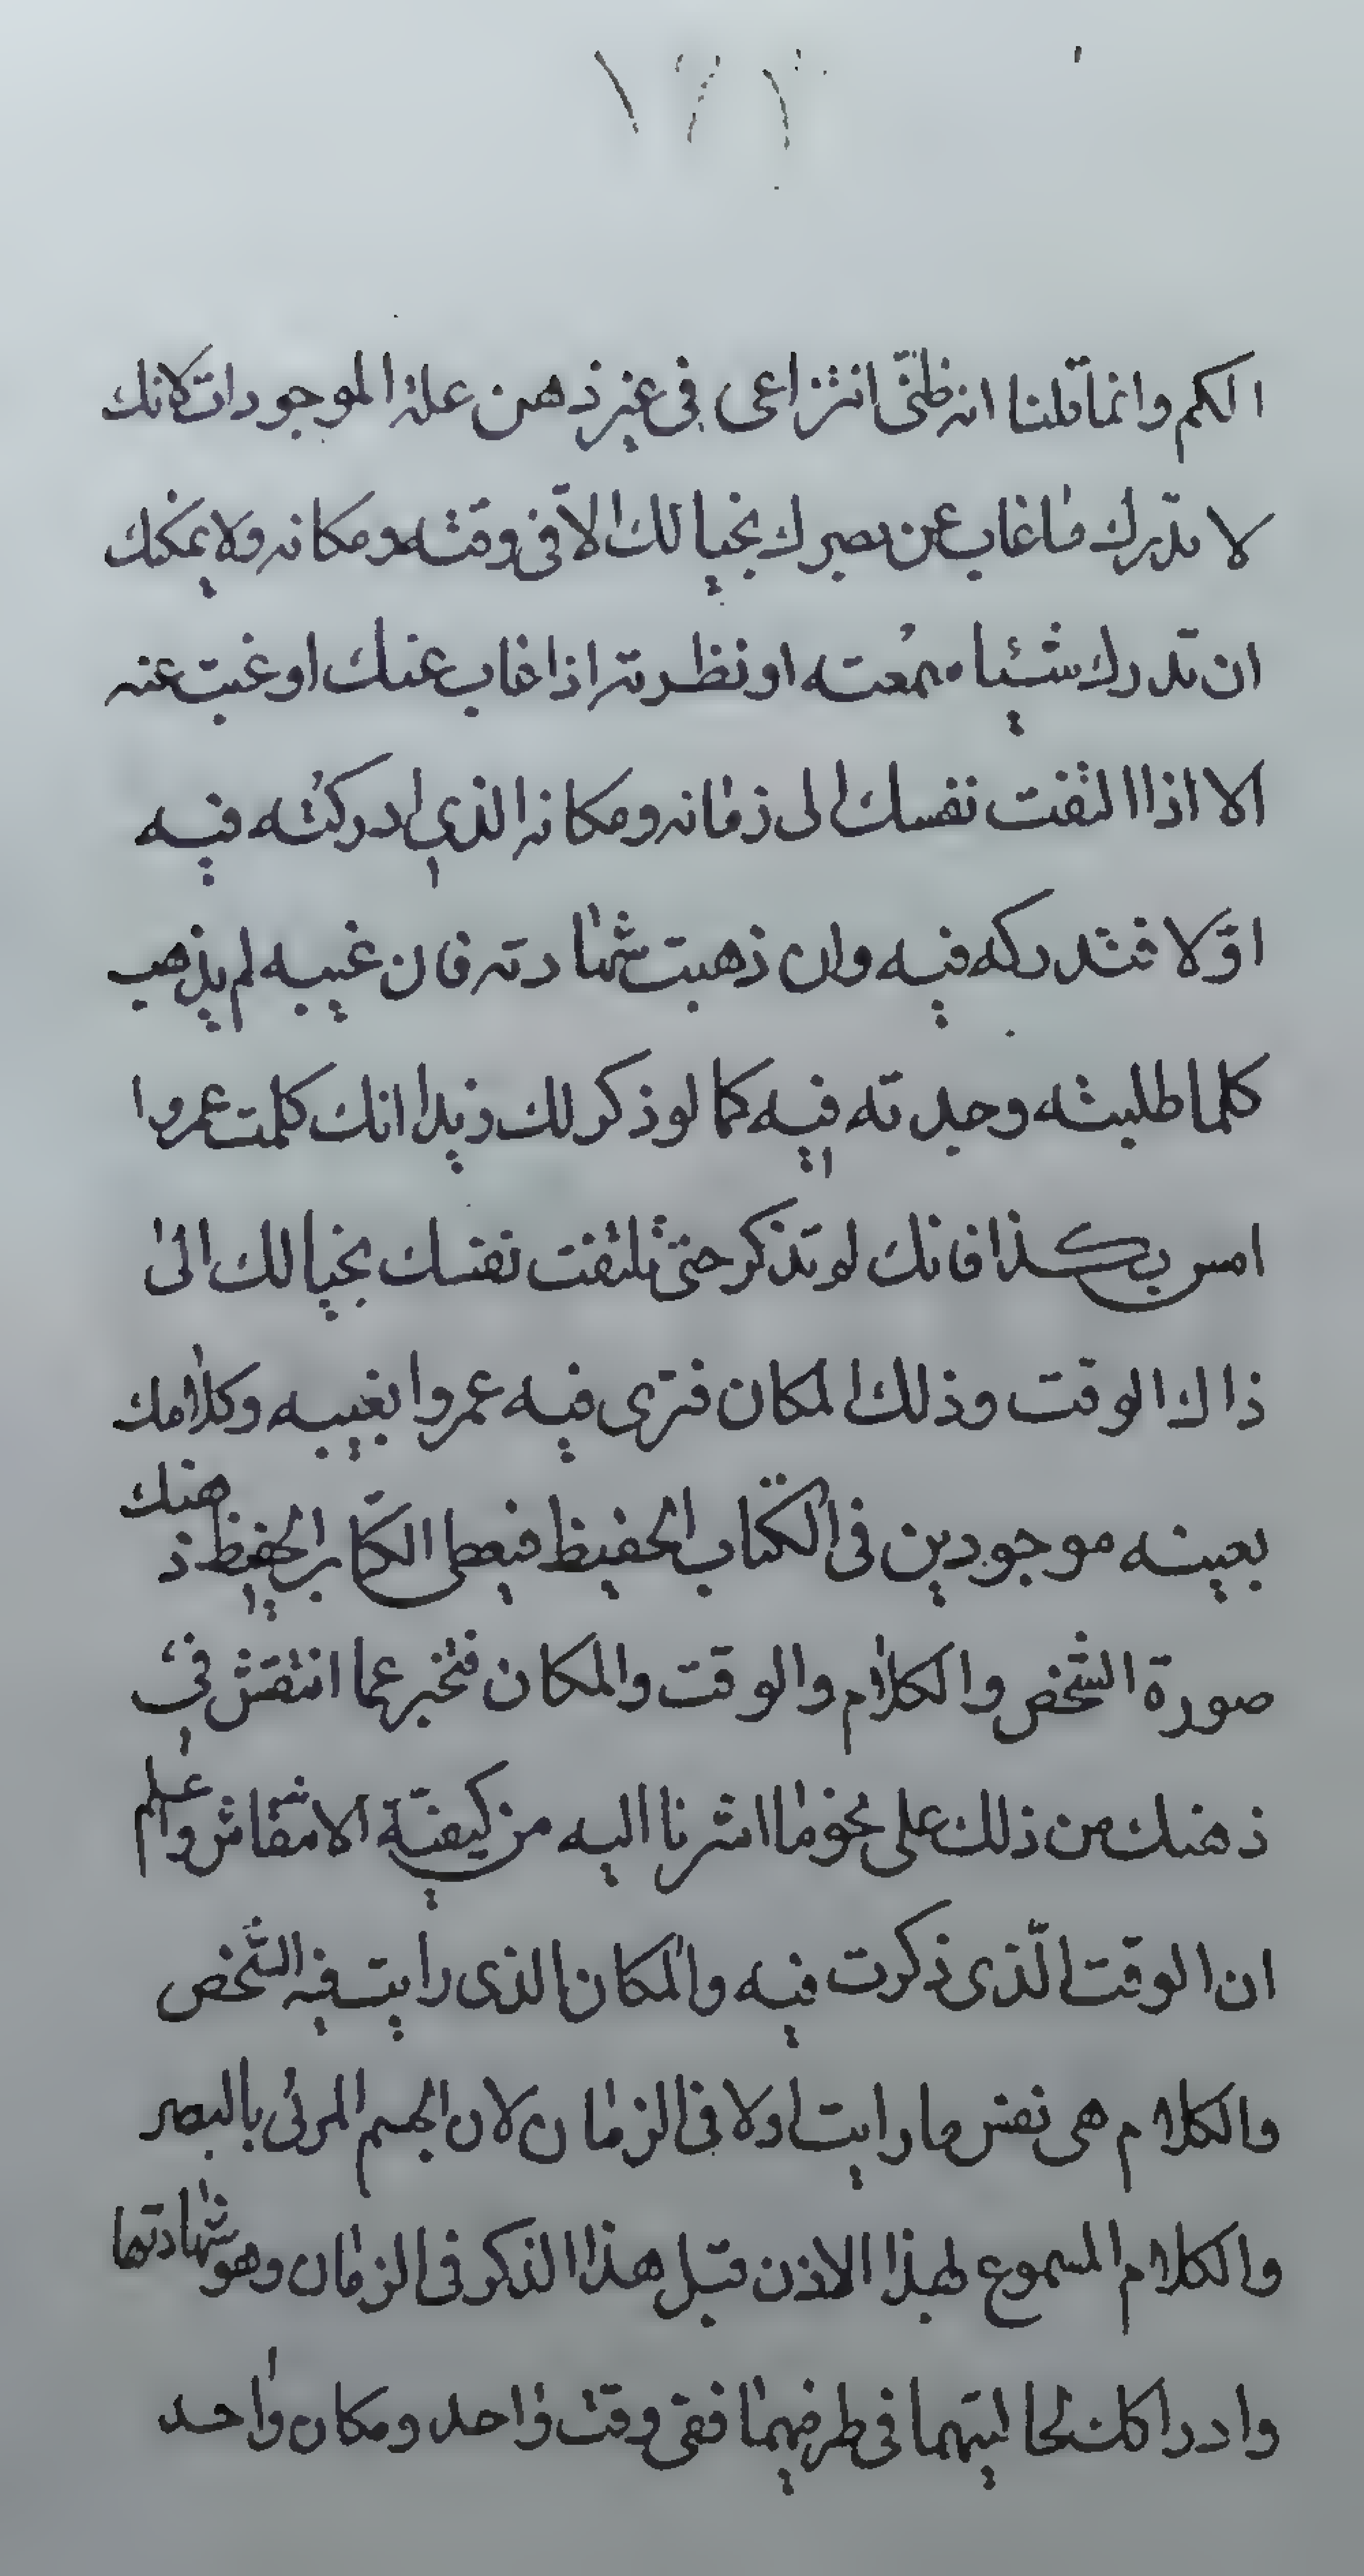 ١٧١
الكم وانما قلنا انه ظنّي انتزاعى فى غير ذهن علة الموجودات لانك
لا تدرك ما غاب عن بصرك بخيالك الاّ فى وقته ومكانه ولا يمكنك
ان تدرك شيئا سمعته او نظرته اذا غاب عنك او غبت عنه
الا اذا التفت نفسك الى زمانه ومكانه الذى ادركته فيه
اوّلا فتدركه فيه وان ذهبت شهادته فان غيبه لم يذهب
كلما طلبته وجدته فيه كما لو ذكر لك زيدا انك كلمت عمروا
امس بكذا فانك لو تذكر حتى تلتفت نفسك بخيالك الى
ذاك الوقت وذلك المكان فترى فيه عمروا بغيبه وكلامك
بعينه موجودين فى الكتاب الحفيظ فيعطى الكتاب الحفيظ ذهنك
صورة الشخص والكلام والوقت والمكان فتخبر عما انتقش فى
ذهنك من ذلك على نحو ما اشرنا اليه من كيفيّة الانتقاش واعلم
ان الوقت الّذى ذكرت فيه والمكان الذى رايت فيه الشخص
والكلام هى نفس ما رايت اولا فى الزمان لان الجسم المرئى بالبصر
والكلام المسموع لهذا الاذن قبل هذا الذكر فى الزمان وهو شهادتهما
وادراكك لحاليتهما فى طرفيهما ففى وقت واحد ومكان واحد